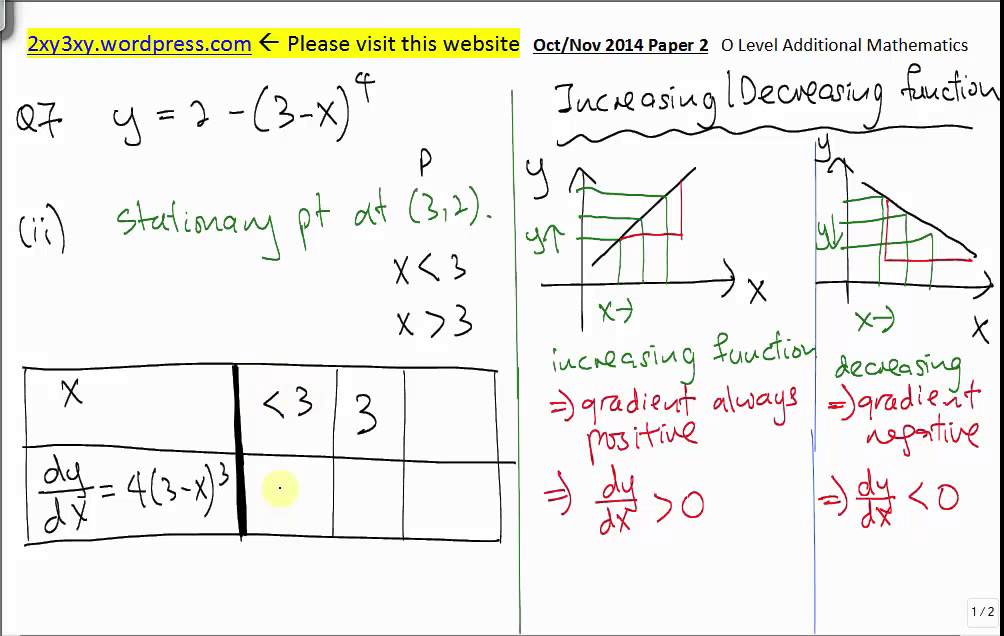 2xy3xy.wordpress.com ← Please visit this website Oct/Nov 2014 Paper 2 O Level Additional Mathematics
Q7 y = 2 - (3-x)^4
(ii) stationary pt at (3,2).
P
x < 3
x > 3
x < 3 3
dy/dx = 4(3-x)^3
Increasing | Decreasing function
y
y↑
x→
x
increasing function
⇒ gradient always
positive
⇒ dy/dx > 0
y
y↓
x→
x
decreasing
⇒ gradient
negative
⇒ dy/dx < 0
1 / 2